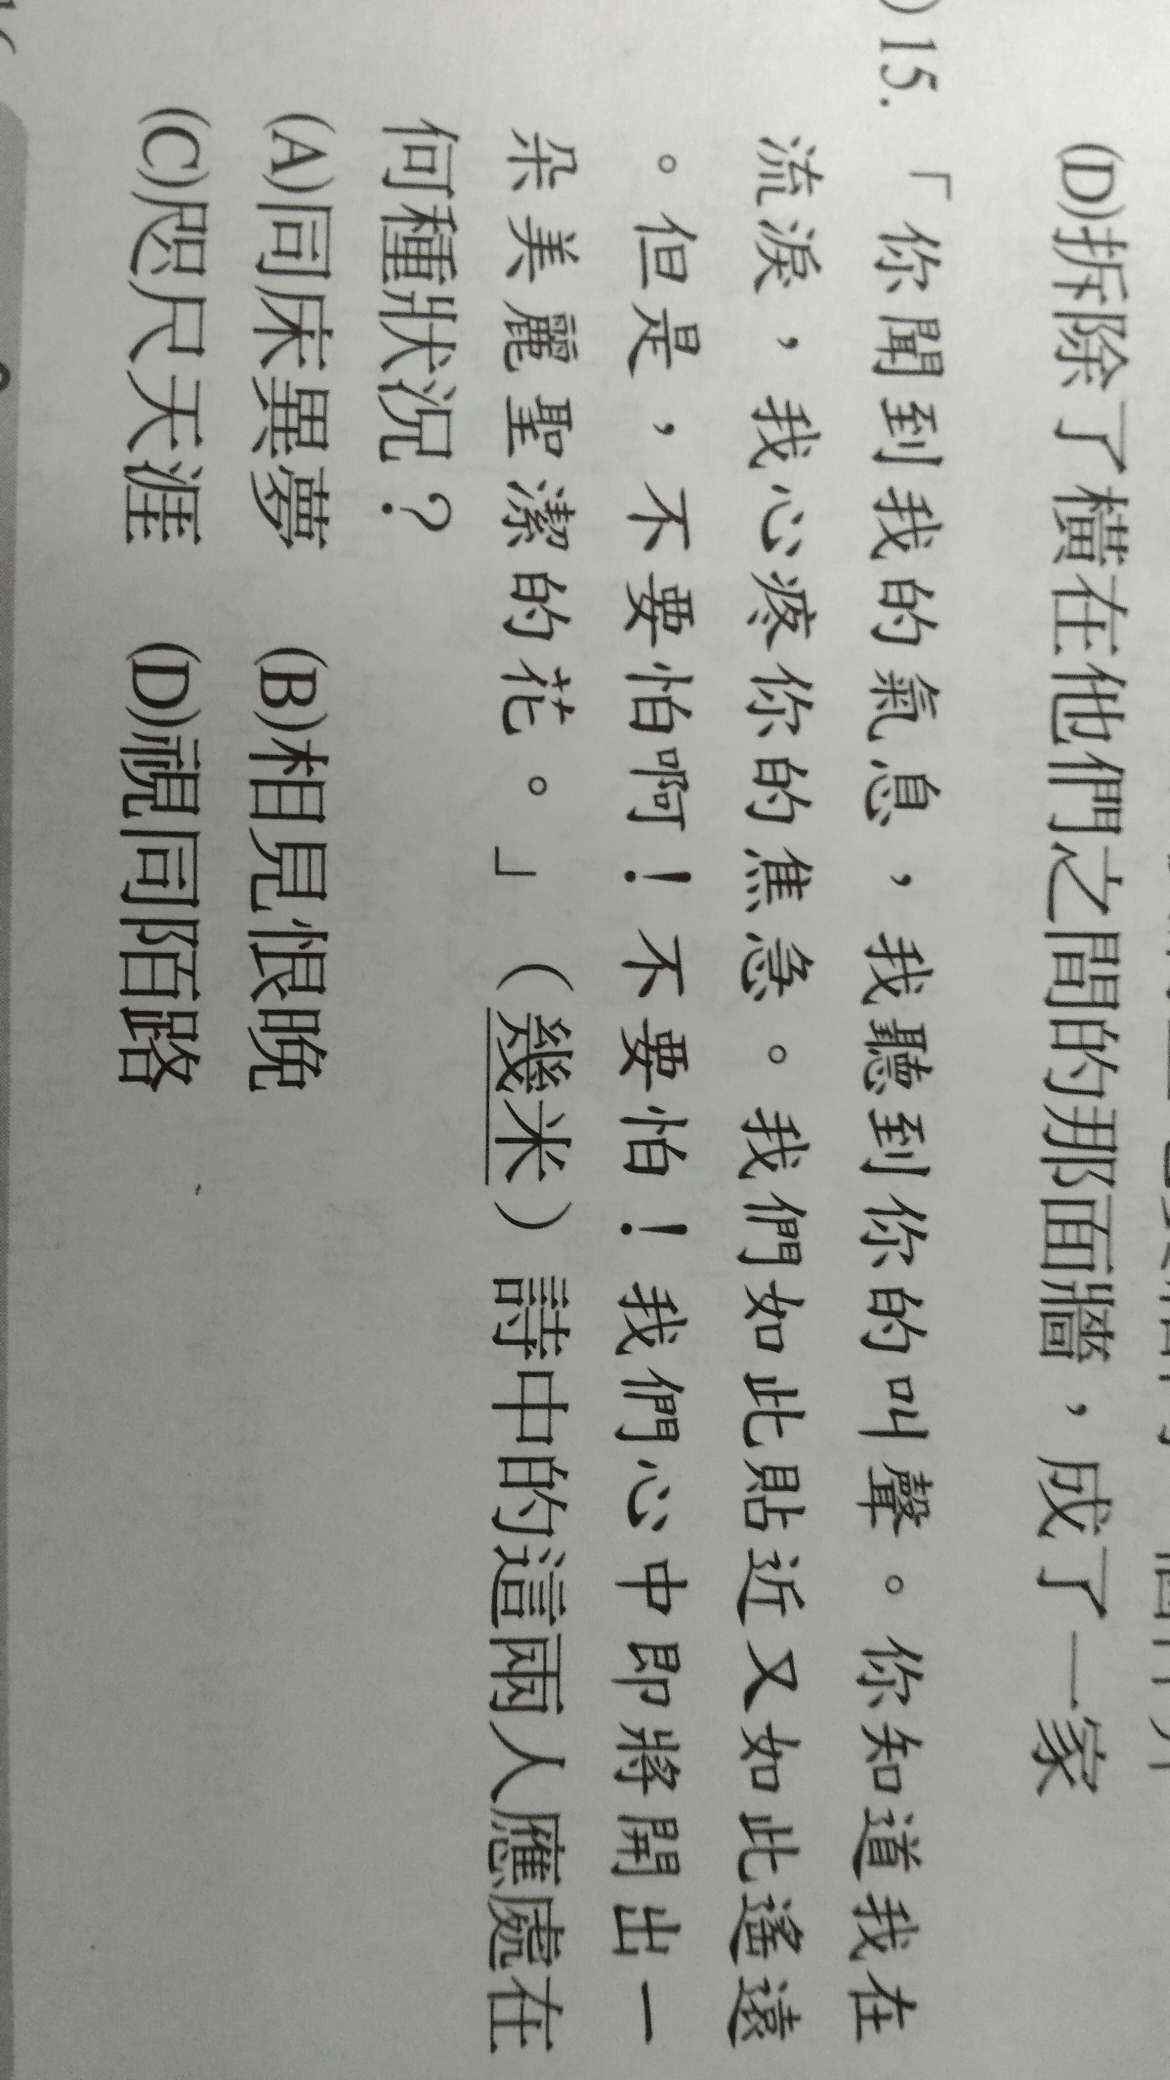 (D)拆除了橫在他們之間的那面牆，成了一家
)15.「你聞到我的氣息，我聽到你的叫聲。你知道我在
流淚，我心疼你的焦急。我們如此貼近又如此遙遠
。但是，不要怕啊！不要怕！我們心中即將開出一
朵美麗聖潔的花。」（幾米）詩中的這兩人應處在
何種狀況？
(A)同床異夢 (B)相見恨晚
(C)咫尺天涯 (D)視同陌路